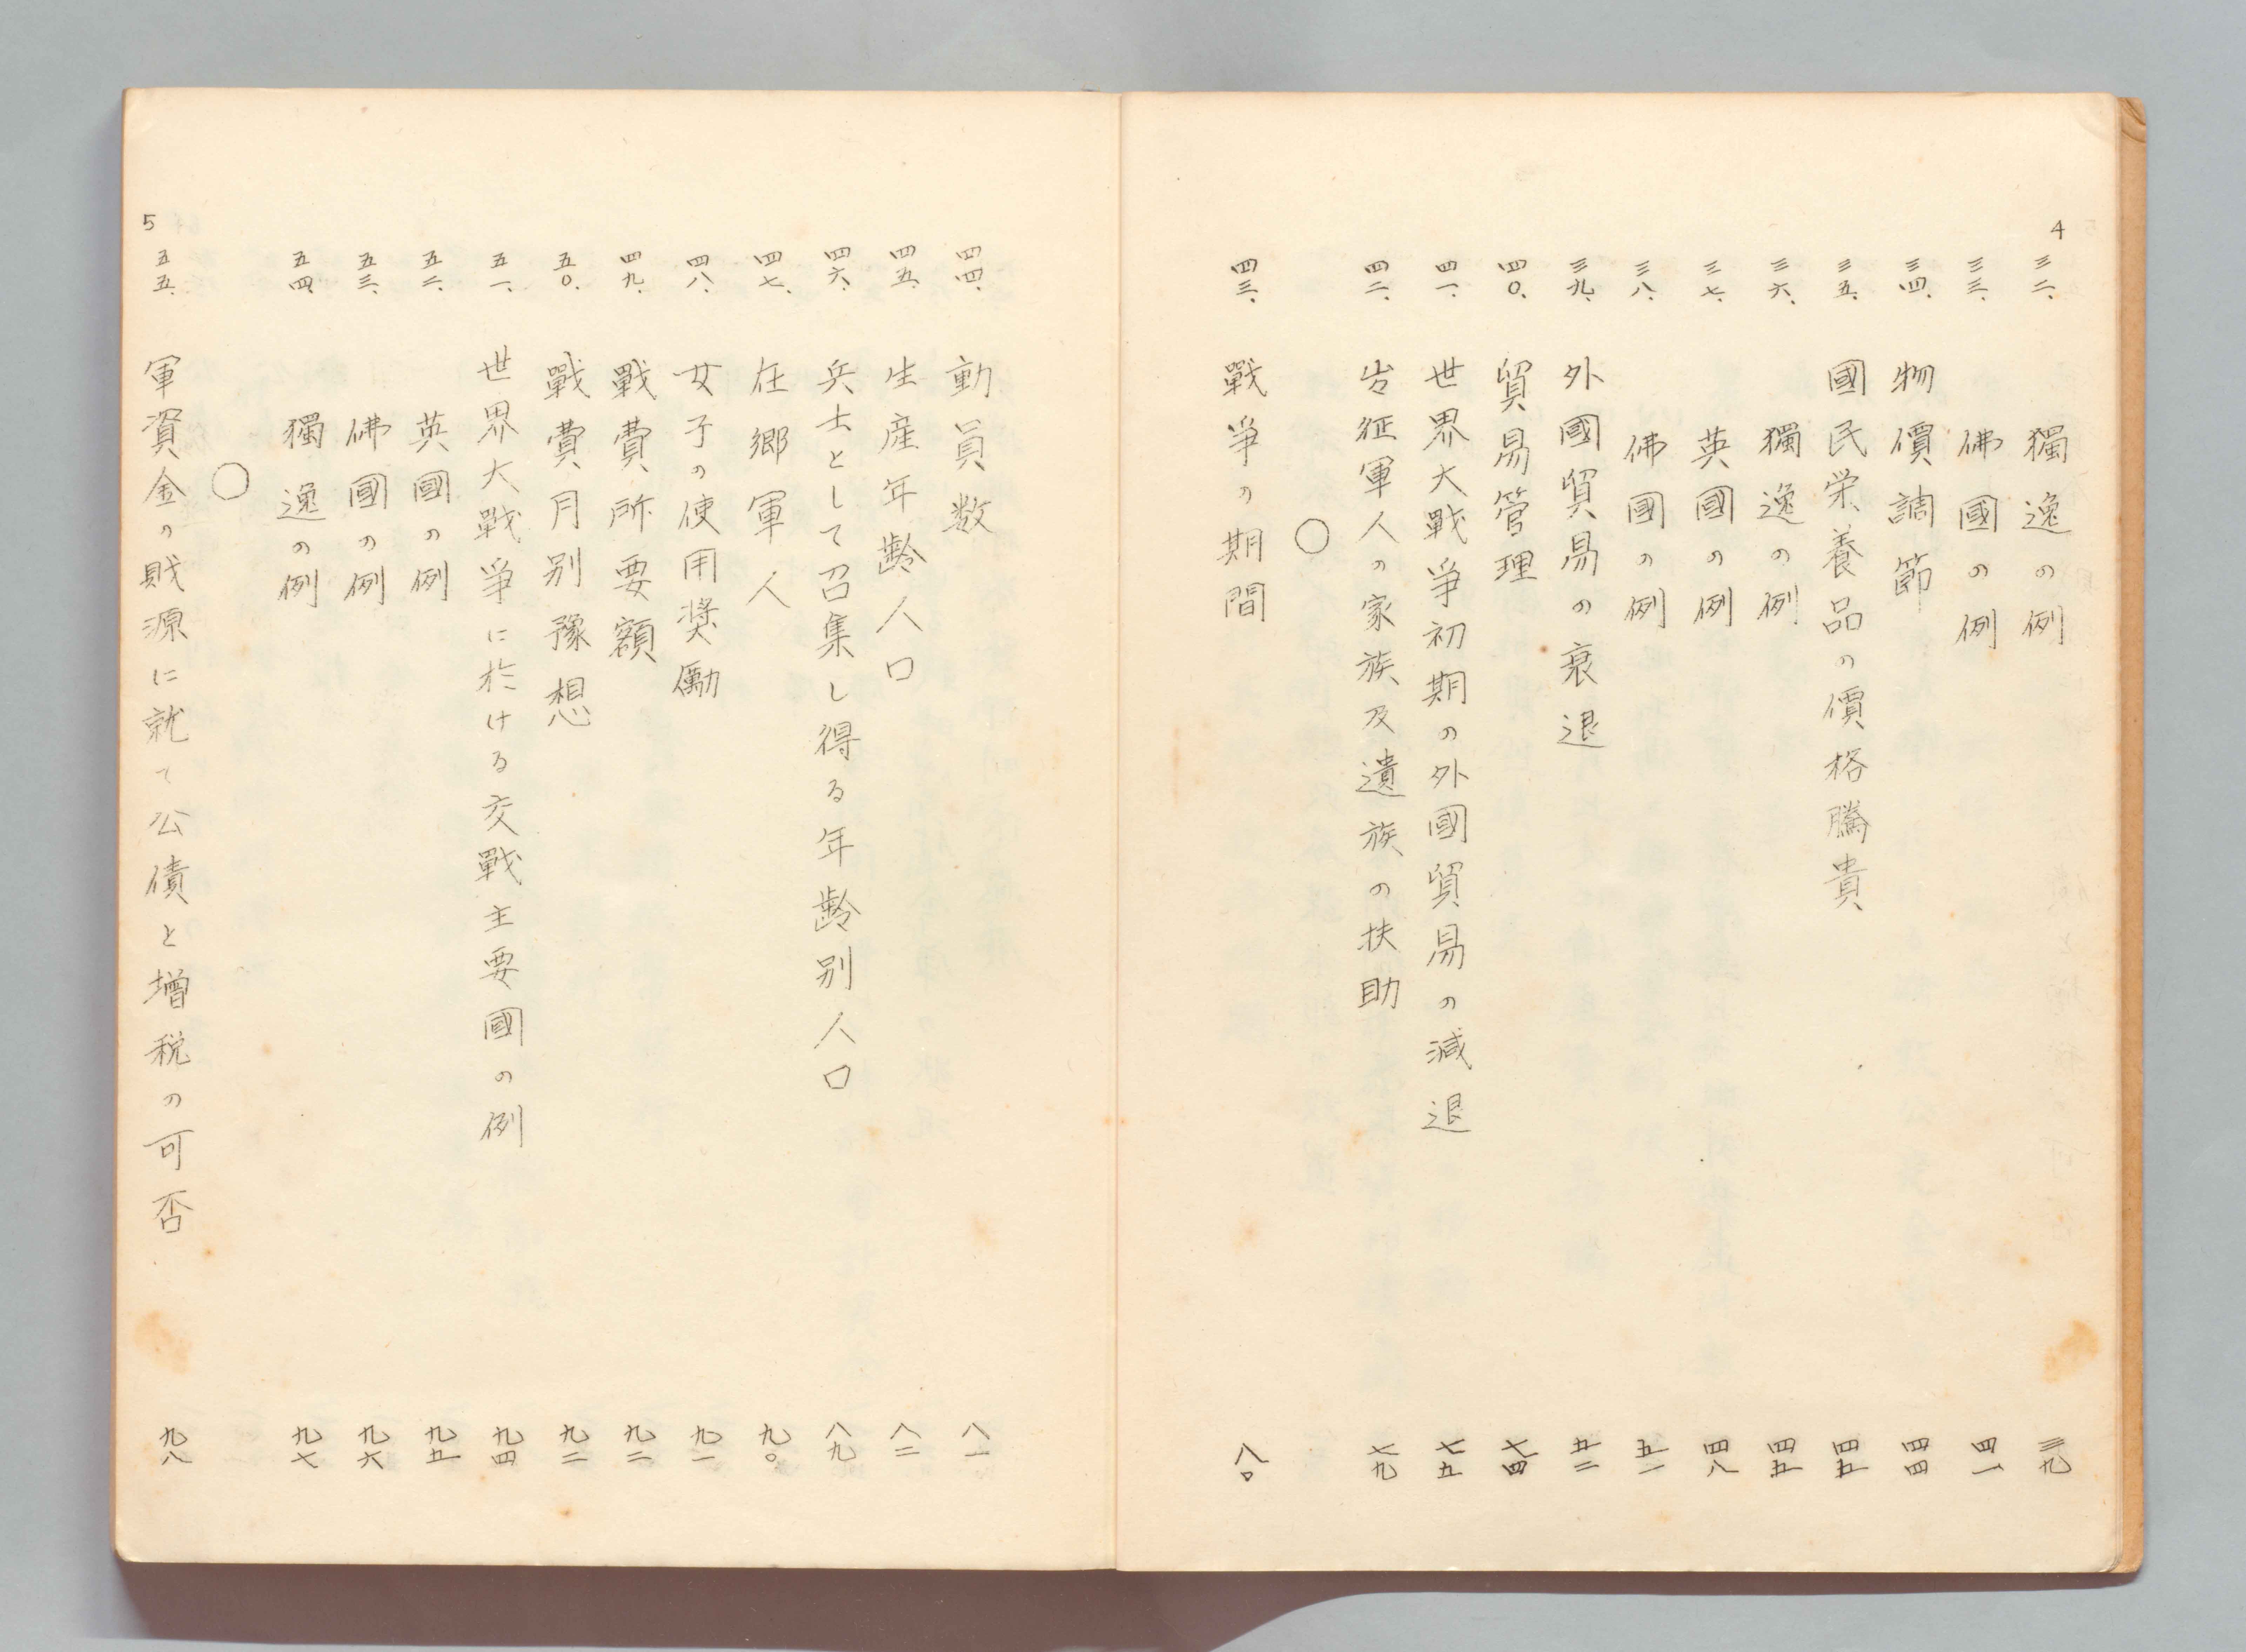 4
三二、獨逸の例 三九
三三、佛國の例 四一
三四、物價調節 四四
三五、國民栄養品の價格騰貴 四五
三六、獨逸の例 四五
三七、英國の例 四八
三八、佛國の例 五一
三九、外國貿易の衰退 五二
四〇、貿易管理 七四
四一、世界大戰爭初期の外國貿易の減退 七五
四二、出征軍人の家族及遺族の扶助 七九
○
四三、戰爭の期間 八〇
四四、動員数 八一
四五、生産年齢人口 八二
四六、兵士として召集し得る年齢別人口 八九
四七、在郷軍人 九〇
四八、女子の使用奨励 九一
四九、戰費所要額 九二
五〇、戰費月別豫想 九二
五一、世界大戰爭に於ける交戰主要國の例 九四
五二、英國の例 九五
五三、佛國の例 九六
五四、獨逸の例 九七
○
5
五五、軍資金の財源に就て公債と増税の可否 九八